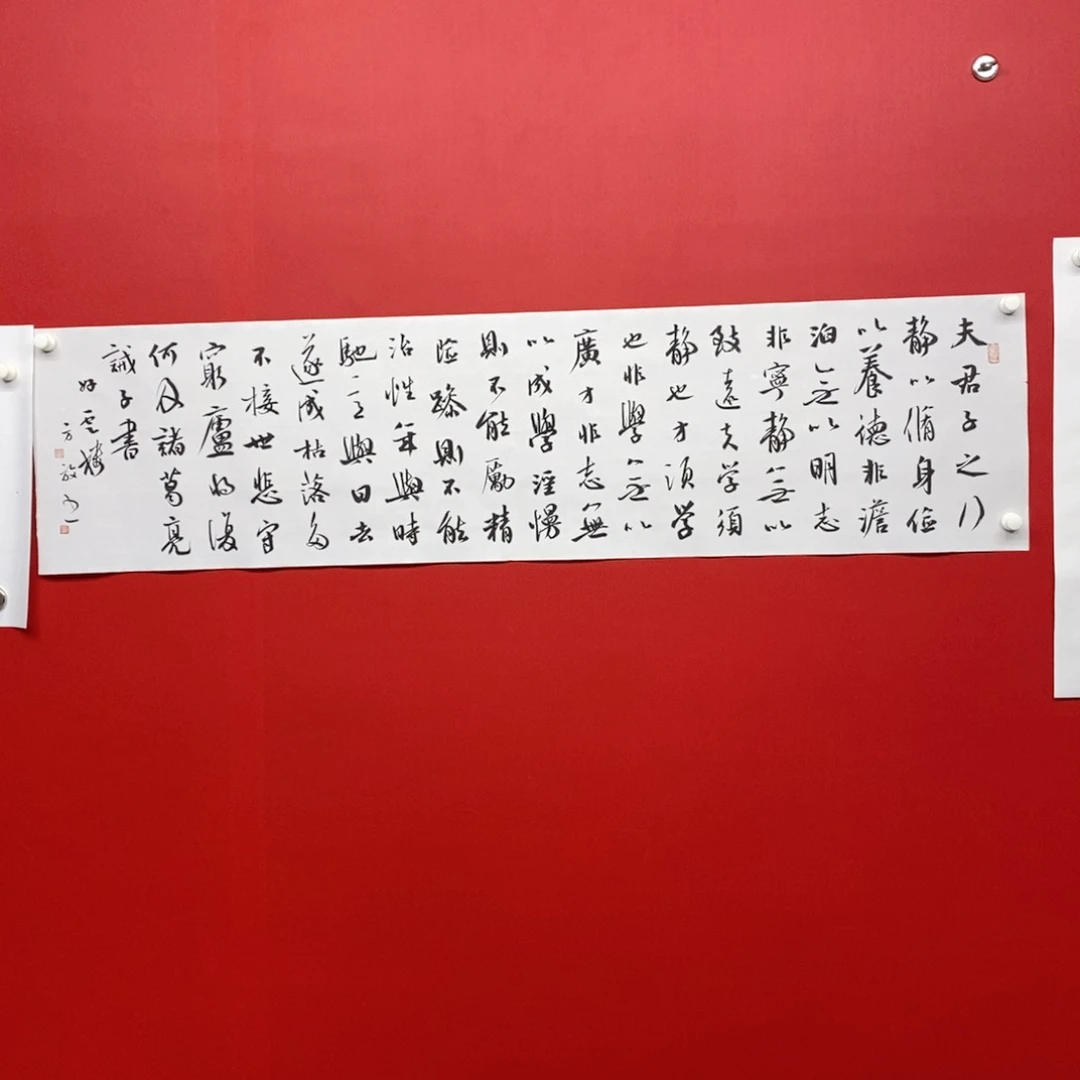 夫君子之行
静以脩身俭
以養德非澹
泊無以明志
非寧静無以
致遠夫学須
静也才須学
也非學無以
廣才非志無
以成學淫慢
則不能勵精
险躁則不能
治性年與時
馳意與日去
遂成枯落多
不接世悲守
窮廬将復
何及諸葛亮
誡子書
好雲樓
方